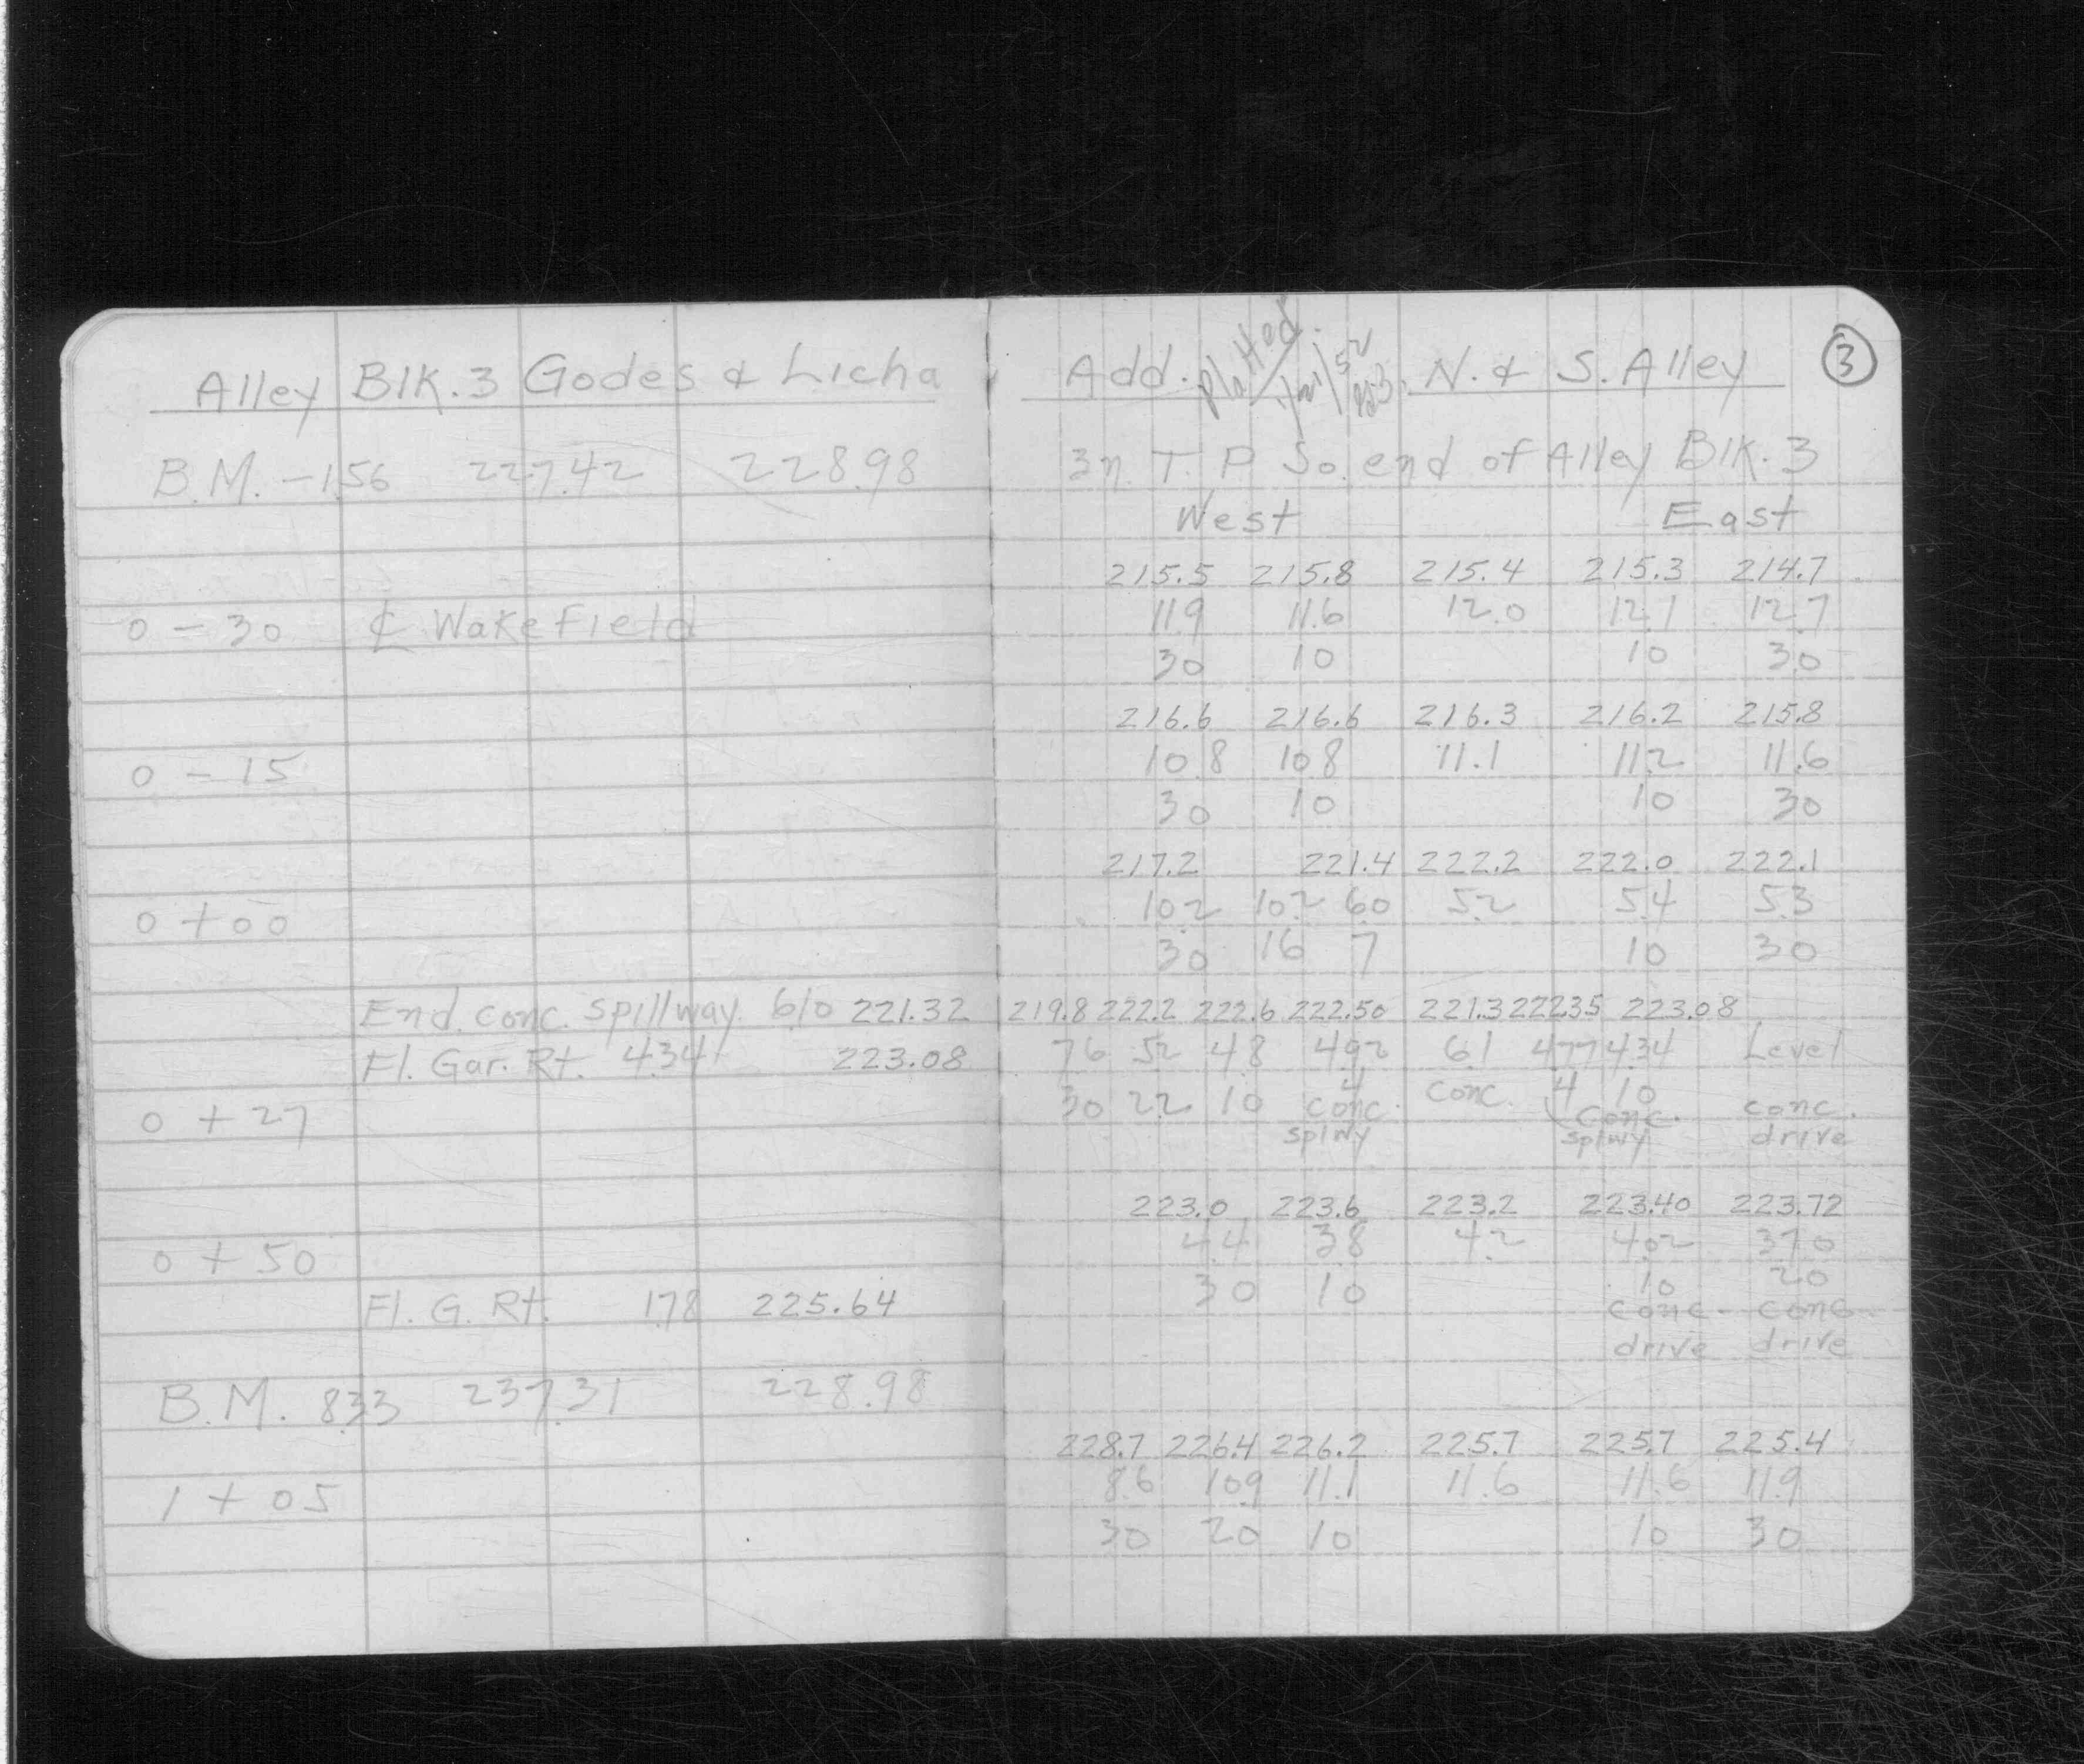 Alley Blk. 3 Godes & Licha Add. platted N. & S. Alley 3
B.M. -1.56 227.42 228.98 3n. T. P So. end of Alley Blk. 3
West East
215.5 215.8 215.4 215.3 214.7
0 - 30 ℄ Wakefield 11.9 11.6 12.0 12.1 12.7
30 10 10 30
216.6 216.6 216.3 216.2 215.8
0 - 15 10.8 10.8 11.1 11.2 11.6
30 10 10 30
217.2 221.4 222.2 222.0 222.1
0 + 00 10.2 10.2 6.0 5.2 5.4 5.3
30 16 7 10 30
End. conc. spillway 6.10 221.32 219.8 222.2 222.6 222.50 221.3 222.35 223.08
Fl. Gar. Rt. 4.34 223.08 7.6 5.2 4.8 4.92 6.1 4.77 4.34 Level
0 + 27 30 22 10 4 conc. conc. 4 10 conc. conc.
splwy splwy drive
223.0 223.6 223.2 223.40 223.72
0 + 50 4.4 3.8 4.2 4.02 3.70
30 10 10 20
Fl. G. Rt. 1.78 225.64 conc. conc.
drive drive
B.M. 8.33 237.31 228.98
228.7 226.4 226.2 225.7 225.7 225.4
1 + 05 8.6 10.9 11.1 11.6 11.6 11.9
30 20 10 10 30